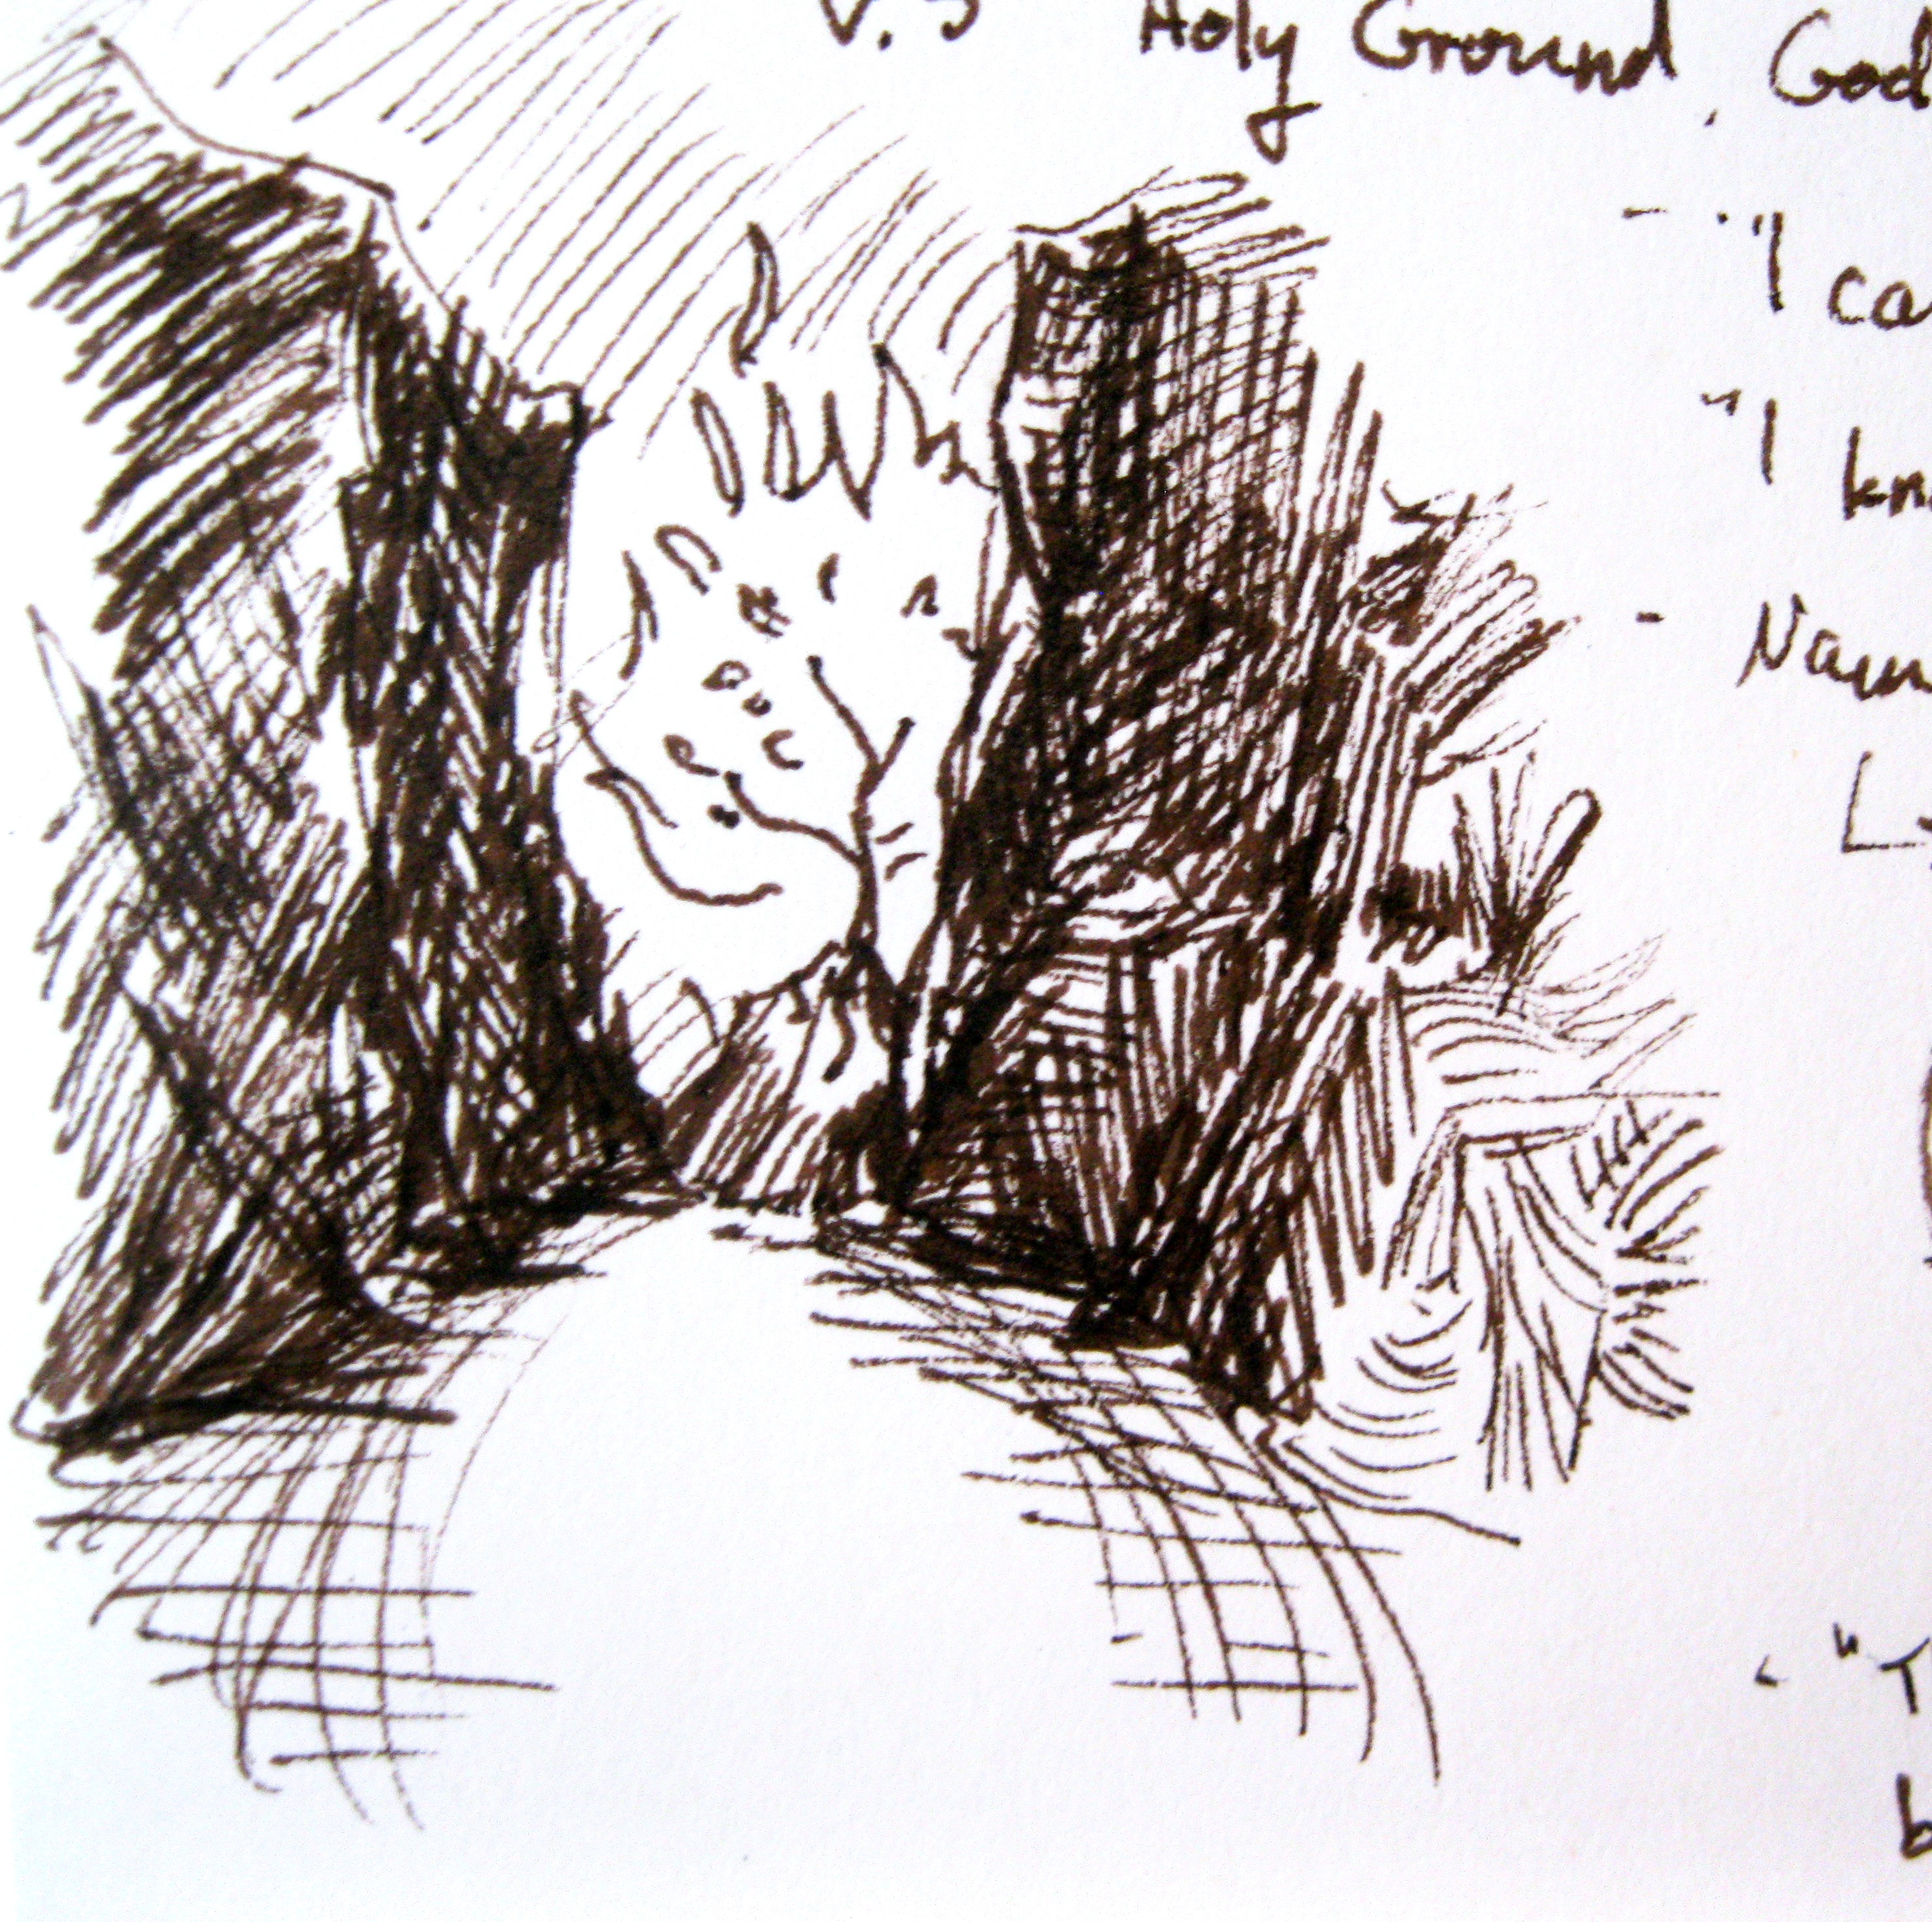 v.5 Holy Ground. God
- "I ca
"I kn
- Nam
L
- "T
b